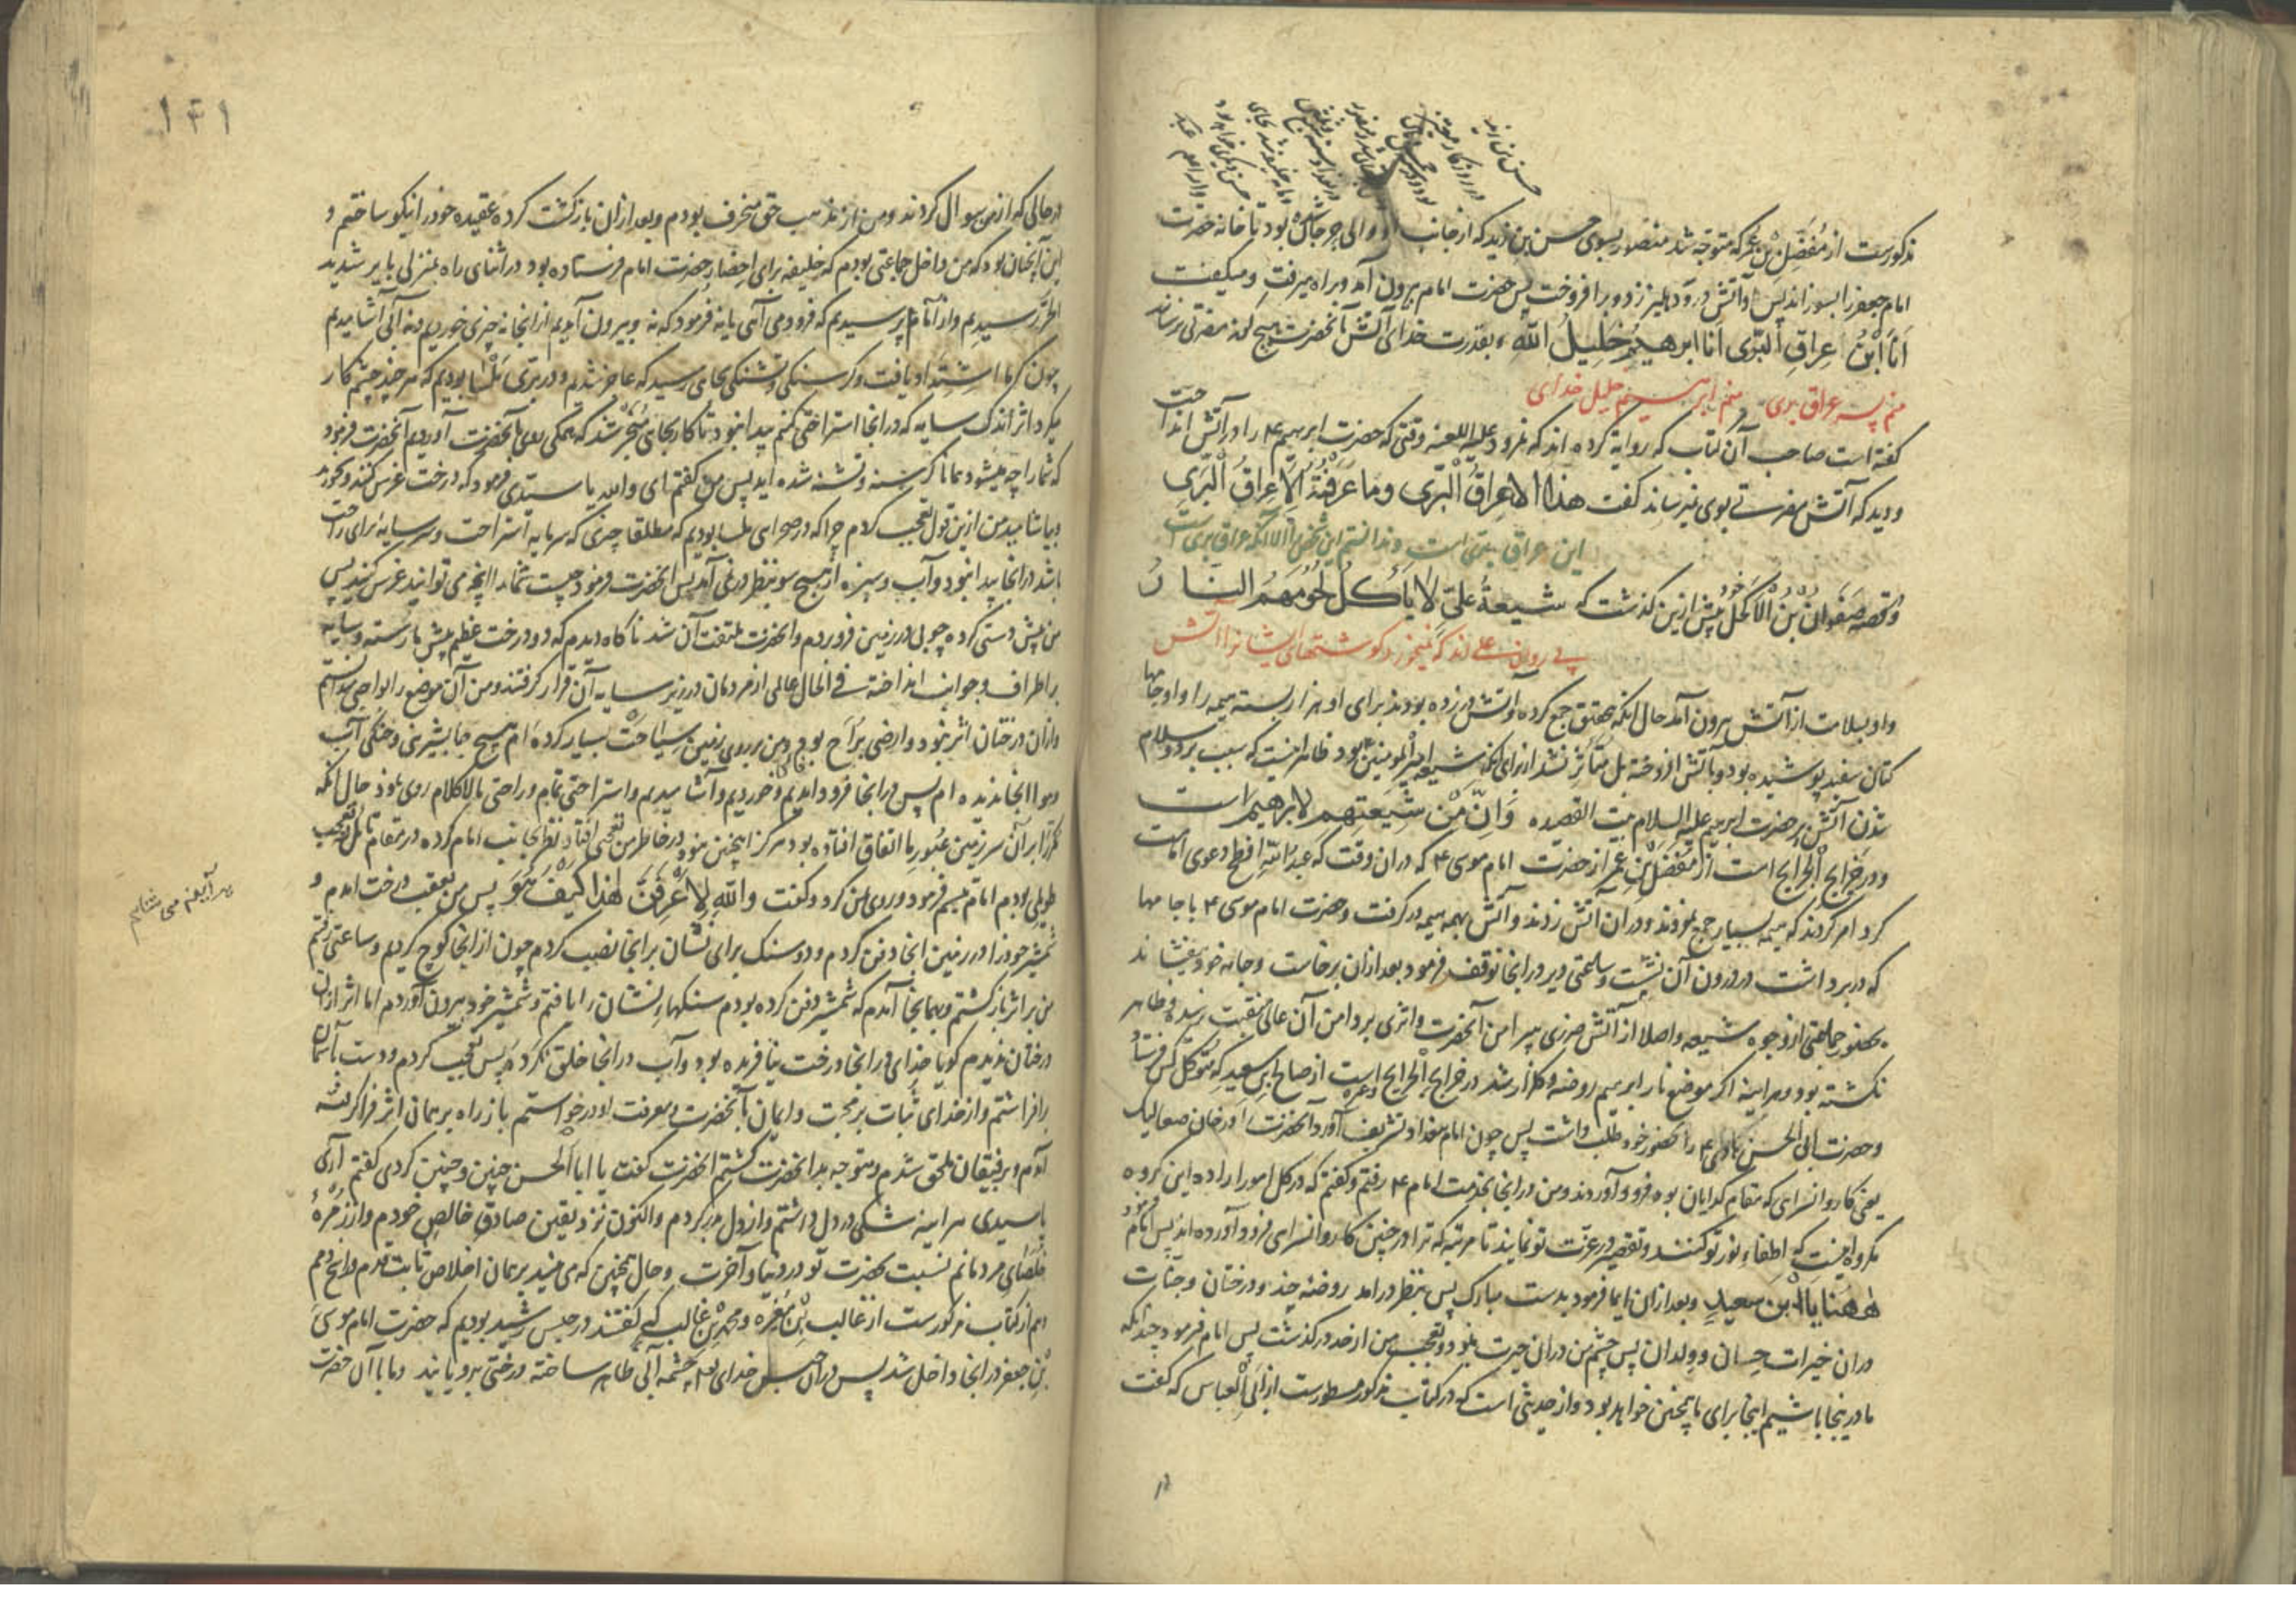 حسن بن زید
مذکورست از مُفَضّل بْن عمر که متوجّه شد منصور بسوی حسن بن زید که از جانب او والی بود تا خانه حضرت
امام جعفر را بسوزاند پس او آتش در و دهلیز زد و برافروخت پس حضرت امام بیرون آمد و براه میرفت و میگفت
اَنَا ابْنُ اَعراقِ الثّرٰی اَنَا ابن ابرهیم خَلیلُ اللّٰهِ بقدرت خدای آتش آنحضرت هیچ گونه مضرتی نرساند
منم پسر عراق ثری منم ابرهیم خلیل خدای
گفته است صاحب آن کتاب که روایة کرده اند که نمرود علیه اللعنه وقتی که حضرت ابرهیم ع را در آتش انداخت
و دید که آتش مضرتی بوی نمیرساند گفت هذا الا عِراقُ الثّرٰی و ما عَرَفْتهُ اِلّا عِراقُ الثّرٰی
این عراق ثری است و ندانستم این شخص را الا آنکه عراق ثری است
و قصّه صَفوانُ بْنُ الاکحل خود پیش ازین گذشت که شیعةُ علیّ لا یأکُلُ لُحُومَهُمُ النّارُ
پی روان علی اند که نمیخورد گوشتهای ایشانرا آتش
و او بسلامت از آتش بیرون آمد حال آنکه بتحقیق جمع کرده و آتش در زده بودند برای او هزار بسته هیمه را و او جامها
کتان سفید پوشیده بود و بآتش افروخته بل متأثر نشد از برای آنکه شیعه امیرالمومنین بود ظاهر اینست که سبب برد و سلام
شدن آتش بر حضرت ابرهیم علیه السلام بیت القصیده وَاِنَّ مِنْ شیعَتِهِم لابرهیم است
و در خرایج الجرایح است از مُفَضّل بن عمر از حضرت امام موسی ع که دران وقت که عبدالله افطح دعوی امامت
کرد امر کردند که هیمه بسیار جمع نمودند و دران آتش زدند و آتش بهمه هیمه در گرفت و حضرت امام موسی ع با جامها
که در بر داشت در درون آن نشست و ساعتی دیر در انجا توقف فرمود بعد ازان برخاست و جامه خود میفشاند
بحضور جماعتی از وجوه شیعه و اصلا از آتش ضرری پیرامن آنحضرت و اثری بر دامن آن عالی منقبت نرسیده ظاهر
نگشته بود و هر اینه اگر موضع نار ابرهیم روضه و گلزار شد در خرایج الجرایح است از صالح بن سعید که متوکل کس فرستاد
و حضرت ابی الحسن هادی ع را بحضور خود طلب داشت پس چون امام ببغداد تشریف آورد آنحضرت را در خان صعالیک
یعنی کاروانسرای که مقام گدایان بود فرود آوردند و من در انجا بخدمت امام ع رفتم و گفتم که در کل امور اراده این گروه
مکروه اینست که اِطفاء نور تو کنند و تقصیر در عزت تو نمایند تا مرتبه که ترا در چنین کاروانسرای فرود آورده اند پس امام فرمود
هٰهُنا یَا ابن سعیدٍ و بعد ازان ایما فرمود بدست مبارک پس بنظر در امد روضهٔ چند و درختان و جنات
دران خیرات حِسان و ولدان پس چشم من دران حیرت نمود و تعجب من از حد در گذشت پس امام فرمود چندانکه
ما درینجا باشیم اینجا برای ما همچنین خواهد بود و از حدیثی است که در کتاب مذکور مسطورست از ابی العباس که گفت
۱۴۱
در حالی که از من سوال کردند و من از مذهب حق منحرف بودم و بعد ازان بازگشت کرده عقیده خود را نیکو ساختم و
این آنچنان بود که من داخل جماعتی بودم که خلیفه برای احضار حضرت امام فرستاده بود در اثنای راه بمنزلی بایر شدید
الحرّ رسیدیم و از امام پرسیدیم که فرود می آئی یا نه فرمود که نه و بیرون آمدیم از انجا نه چیزی خوردیم و نه آبی آشامیدیم
چون گرما اشتداد یافت و گرسنگی و تشنگی بجای رسید که عاجز شدیم و در بَرّی مَلْسا بودیم که هر چند چشم کار
میکرد اثر اندک سایه که در انجا استراحتی کنیم پیدا نبود تا کار بجای منجر شد که همگی روی بآنحضرت آوردیم آنحضرت فرمود
که شما را چه میشود همانا گرسنه و تشنه شده اید پس من گفتم ای والله یا سیّدی فرمود که درخت غرس کنند و بخورند
و بیاشامید من ازین قول تعجب کردم چرا که در صحرای ملسا بودیم که مطلقا چیزی که سرمایه استراحت و سایهٔ برای راحت
باشد در انجا پیدا نبود و آب و سبزه از هیچ سو بنظر در نمی آمد پس آنحضرت فرمود چیست شما را آنچه می توانید غرس کنید پس
من پیش دستی کرده چوبی در زمین فرو بردم و آنحضرت ملتفت آن شد ناگاه دیدم که دو درخت عظیم پیش ما رسته و سایه
بر اطراف و جوانب انداخته فی الحال عالمی از مردمان در زیر سایه آن قرار گرفتند و من آن موضع را واجبی میدانستم
و ازان درختان اثر نبود و ارضی براح بود و من بر روی زمین سِیاحَت بسیار کرده ام هیچ جا بشیرینی و خنکی آب
و هوا انجا ندیده ام پس در انجا فرود آمدیم و خوردیم و آشامیدیم و استراحتی تمام و راحتی مالاکلام روی نمود حال آنکه
مکرر ابران سرزمین عبور ما اتفاق افتاده بود هرگز اینچنین نبود در خاطر من تعجبی افتاد نظر بجانب امام کرده در مقام تأمل و تعجب
طویلی بودم امام تبسم فرمود و روی بمن کرد و گفت واللّٰهِ لَاَعْرِفَنَّ هٰذا کیْفَ هُوَ پس من بعقب درخت آمدم و
هر آینه می شناسم
شمشیر خود را در زمین انجا دفن کردم و دو سنگ برای نشان بر انجا نصب کردم چون از انجا کوچ کردیم و ساعتی رفتیم
من بر اثر بازگشتم و بهمانجا آمدم که شمشیر دفن کرده بودم سنگهاء نشان را یافتم و شمشیر خود بیرون آوردم اما اثر ازان
درختان ندیدم گویا خدای در انجا درخت نیافریده بود و آب در انجا خلق نکرد پس تعجب کردم و دست بآسمان
برافراشتم و از خدای ثبات بر محبت و ایمان بآنحضرت و معرفت او درخواستم باز راه بر همان اثر فرا گرفته
آمدم و برفیقان ملحق شدم و متوجه بدانحضرت گشتم آنحضرت گفت یا ابا الحسن چنین و چنین کردی گفتم آری
یا سیدی هر اینه شکی در دل داشتم و از دل بدر کردم و اکنون نزد یقین صادق خالص خودم و از زمرهٔ
خلصای مردمانم نسبت بحضرت تو در دنیا و آخرت و حال همچنین که می بینید بر همان اخلاص ثابت قدم
هم از کتاب مذکورست از غالب بْن مُغیره و محمد بْن غالب که گفتند در حبس رشید بودیم که حضرت امام موسی
بْن جعفر در انجا داخل شد پس دران حبس خدای تعه چشمه آبی ظاهر ساخته درختی برویانید و ما با آن حضرت